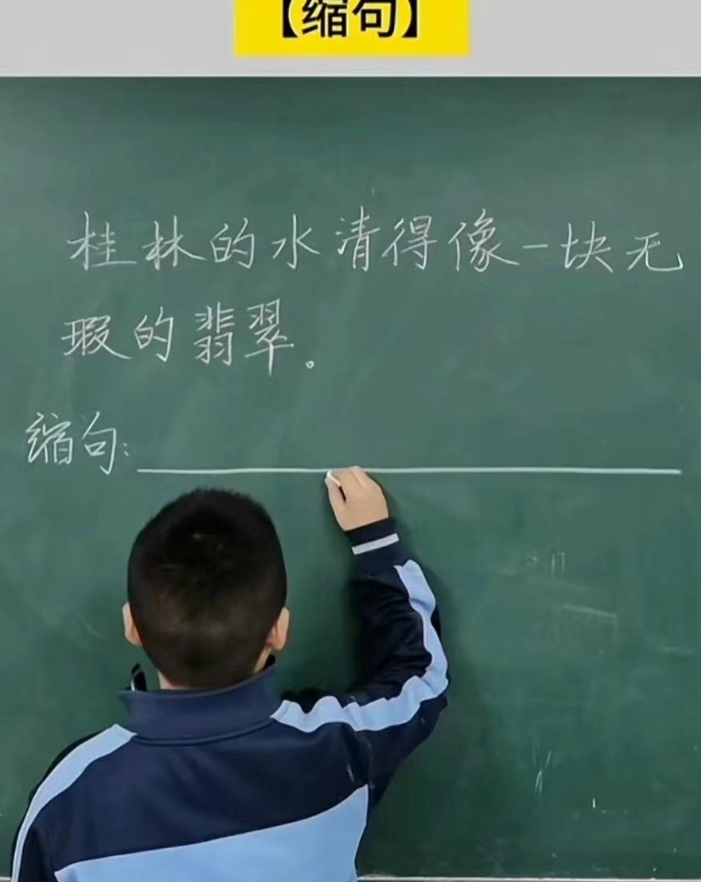 【缩句】
桂林的水清得像一块无
瑕的翡翠。
缩句: